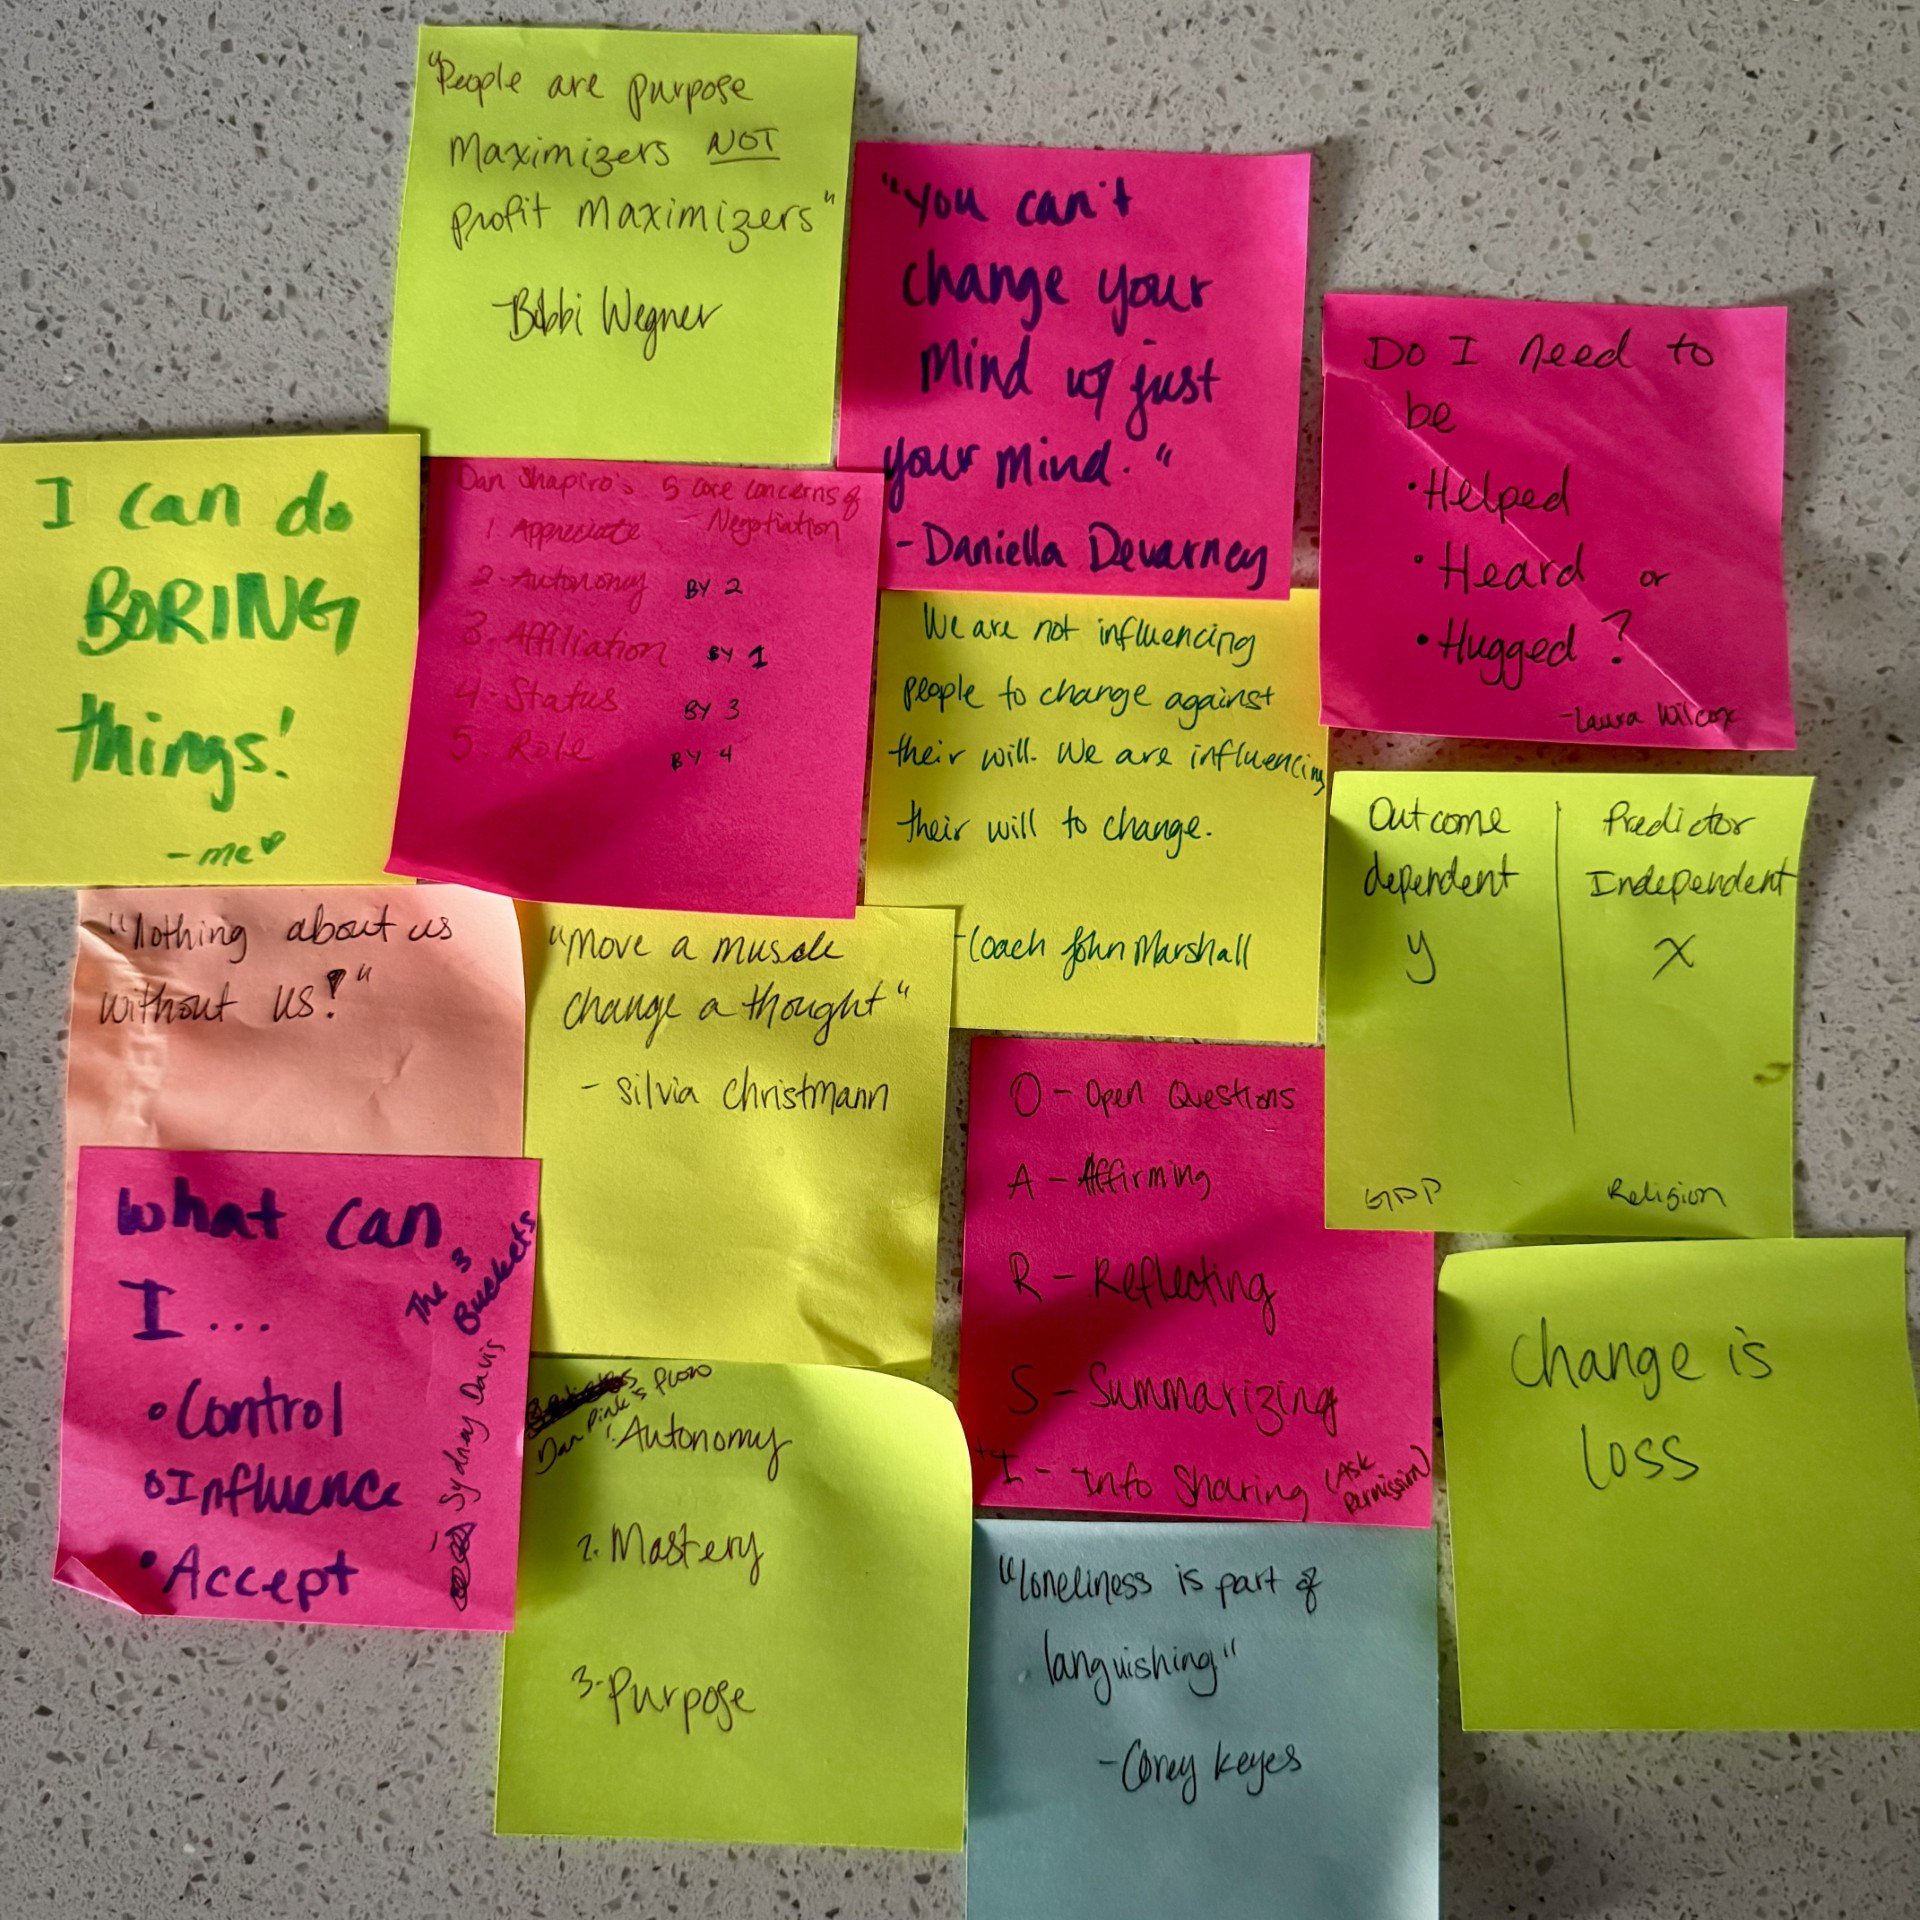 "People are purpose
Maximizers NOT
profit Maximizers"
-Bobbi Wegner
"You can't
change your
Mind w/ just
your Mind."
- Daniella Devarney
Do I need to
be
• Helped
• Heard or
• Hugged?
-Laura Wilcox
I can do
BORING
things!
- me
Dan Shapiro's 5 core concerns of
Negotiation
1 Appreciate
2. Autonomy BY 2
3. Affiliation BY 1
4. Status BY 3
5. Role BY 4
We are not influencing
people to change against
their will. We are influencing
their will to change.
- Coach John Marshall
Outcome
dependent
y
GDP
Predictor
Independent
x
Religion
"Nothing about us
without us!"
"Move a muscle
change a thought"
- Silvia Christmann
O - Open Questions
A - Affirming
R - Reflecting
S - Summarizing
+ I - Info Sharing (Ask
Permission)
What can
I...
• Control
• Influence
• Accept
The 3
Buckets
- Sydney Davis
Dan Pink's flow
1. Autonomy
2. Mastery
3. Purpose
Change is
loss
"Loneliness is part of
languishing"
- Corey Keyes